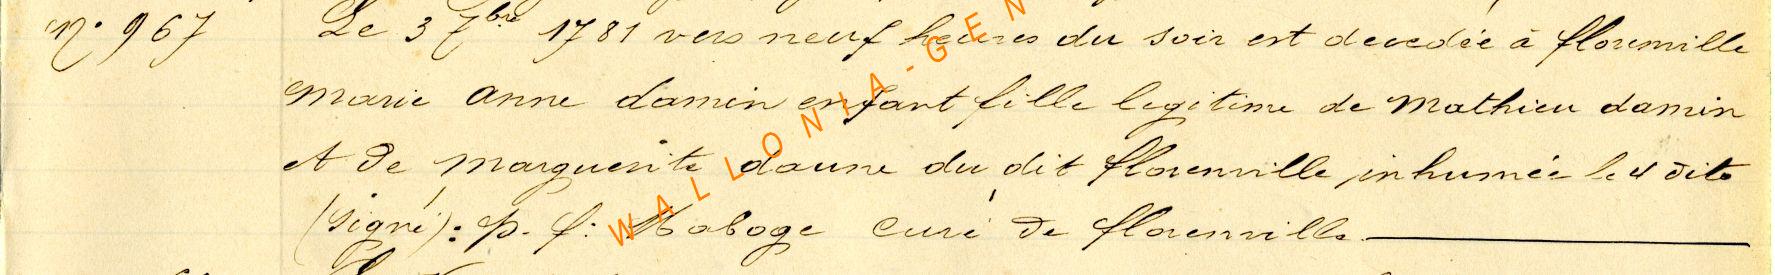 N° 967 Le 3 7bre 1781 vers neuf heures du soir est decedée à florenville
Marie anne damin enfant fille legitime de Mathieu damin
et de Marguerite daune du dit florenville inhumée le 4 dito
(signé): p. f: Maboge curé de florenville.
WALLONIA-GEN